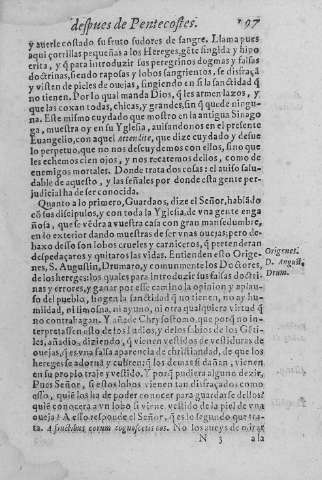 despues de Pentecostes. 197
y averle costado su fruto sudores de sangre. Llama pues
aqui çorrillas pequeñas a los Hereges, gẽte fingida y hipo
crita, y q̃ para introduzir sus peregrinos dogmas y falsas
doctrinas, siendo raposas y lobos sangrientos, se disfraçã
y visten de pieles de ovejas, fingiendo en si la sanctidad q̃
no tienen. Por lo qual manda Dios, q̃ les armen lazos, y
que las coxan todas, chicas, y grandes, sin q̃ quede ningu-
na. Este mismo cuydado que mostro en la antigua Sinago
ga, muestra oy en su Yglesia, avisandonos en el presente
Euangelio, con aquel Attendite, que dize cuydado y desue
lo perpetuo, que no nos descuydemos con ellos, sino que
les echemos cien ojos, y nos recatemos dellos, como de
enemigos mortales. Donde trata dos cosas: el aviso salu-
dable de aquesto, y las señales por donde esta gente per-
judicial ha de ser conocida.
Quanto a lo primero, Guardaos, dize el Señor, hablãdo
cõ sus discipulos, y con toda la Yglesia, de vna gente enga
ñosa, que se vẽdra a vuestra casa con gran mansedumbre,
en lo exterior dando muestras de ser vnas ovejas; pero de-
baxo desso son lobos crueles y carniceros, q̃ pretenderan
despedaçaros y quitaros las vidas. Entienden esto Orige-
nes, S. Augustin, Drumaro, y comunmente los Doctores,
de los hereges: los quales para introduzir sus falsas doctri-
nas y errores, y ganar por esse camino la opinion y aplau-
so del pueblo, fingen la sanctidad q̃ no tienen, no ay hu-
mildad, ni limosna, ni ayuno, ni otra qualquiera virtud q̃
no contrahagan. Y añade Chrysostomo, que porq̃ no in-
terpretassen esto de los Iudios, y de los sabios de los Gẽti-
les, añadio, diziendo, q̃ vienen vestidos de vestiduras de
ovejas, q̃ es vna falsa aparencia de christiandad, de que los
hereges se adornã y cubren: q̃ los demas si dañan, vienen
en su propio traje y vestido. Y porq̃ pudiera alguno dezir,
Pues Señor, si estos lobos vienen tan disfraçados como
esso, quiẽ los ha de poder conocer para guardarse dellos?
quiẽ conocera a vn lobo si viene vestido de la piel de vna
oveja? A esso responde el Señor, q̃ es lo segundo que tra-
ta. A fructibus eorum cognoscetis eos. No los aueys de mirar
N 3 a la
Origenes.
D. August.
Drum.